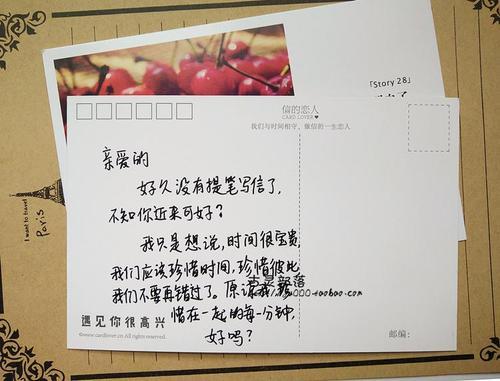 「Story 28」
信的恋人
CARD LOVER
我们与时间相守，做信的一生恋人
亲爱的
好久没有提笔写信了，
不知你近来可好？
我只是想说，时间很宝贵，
我们应该珍惜时间，珍惜彼此
我们不要再错过了。原谅我，珍
惜在一起的每一分钟，
好吗？
遇见你很高兴
©www.cardlover.cn All rights reserved.
邮编：
I want to travel
Paris
部落
000.taobao.com